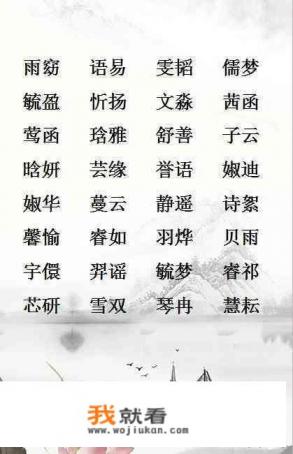 雨窈 语易 雯韬 儒梦
毓盈 忻扬 文淼 茜函
莺函 琀雅 舒善 子云
晗妍 芸缘 誉语 婌迪
婌华 蔓云 静遥 诗絮
馨愉 睿如 羽烨 贝雨
宇儇 羿谣 毓梦 睿祁
芯研 雪双 琴冉 慧耘
我就看
www.wojiukan.com